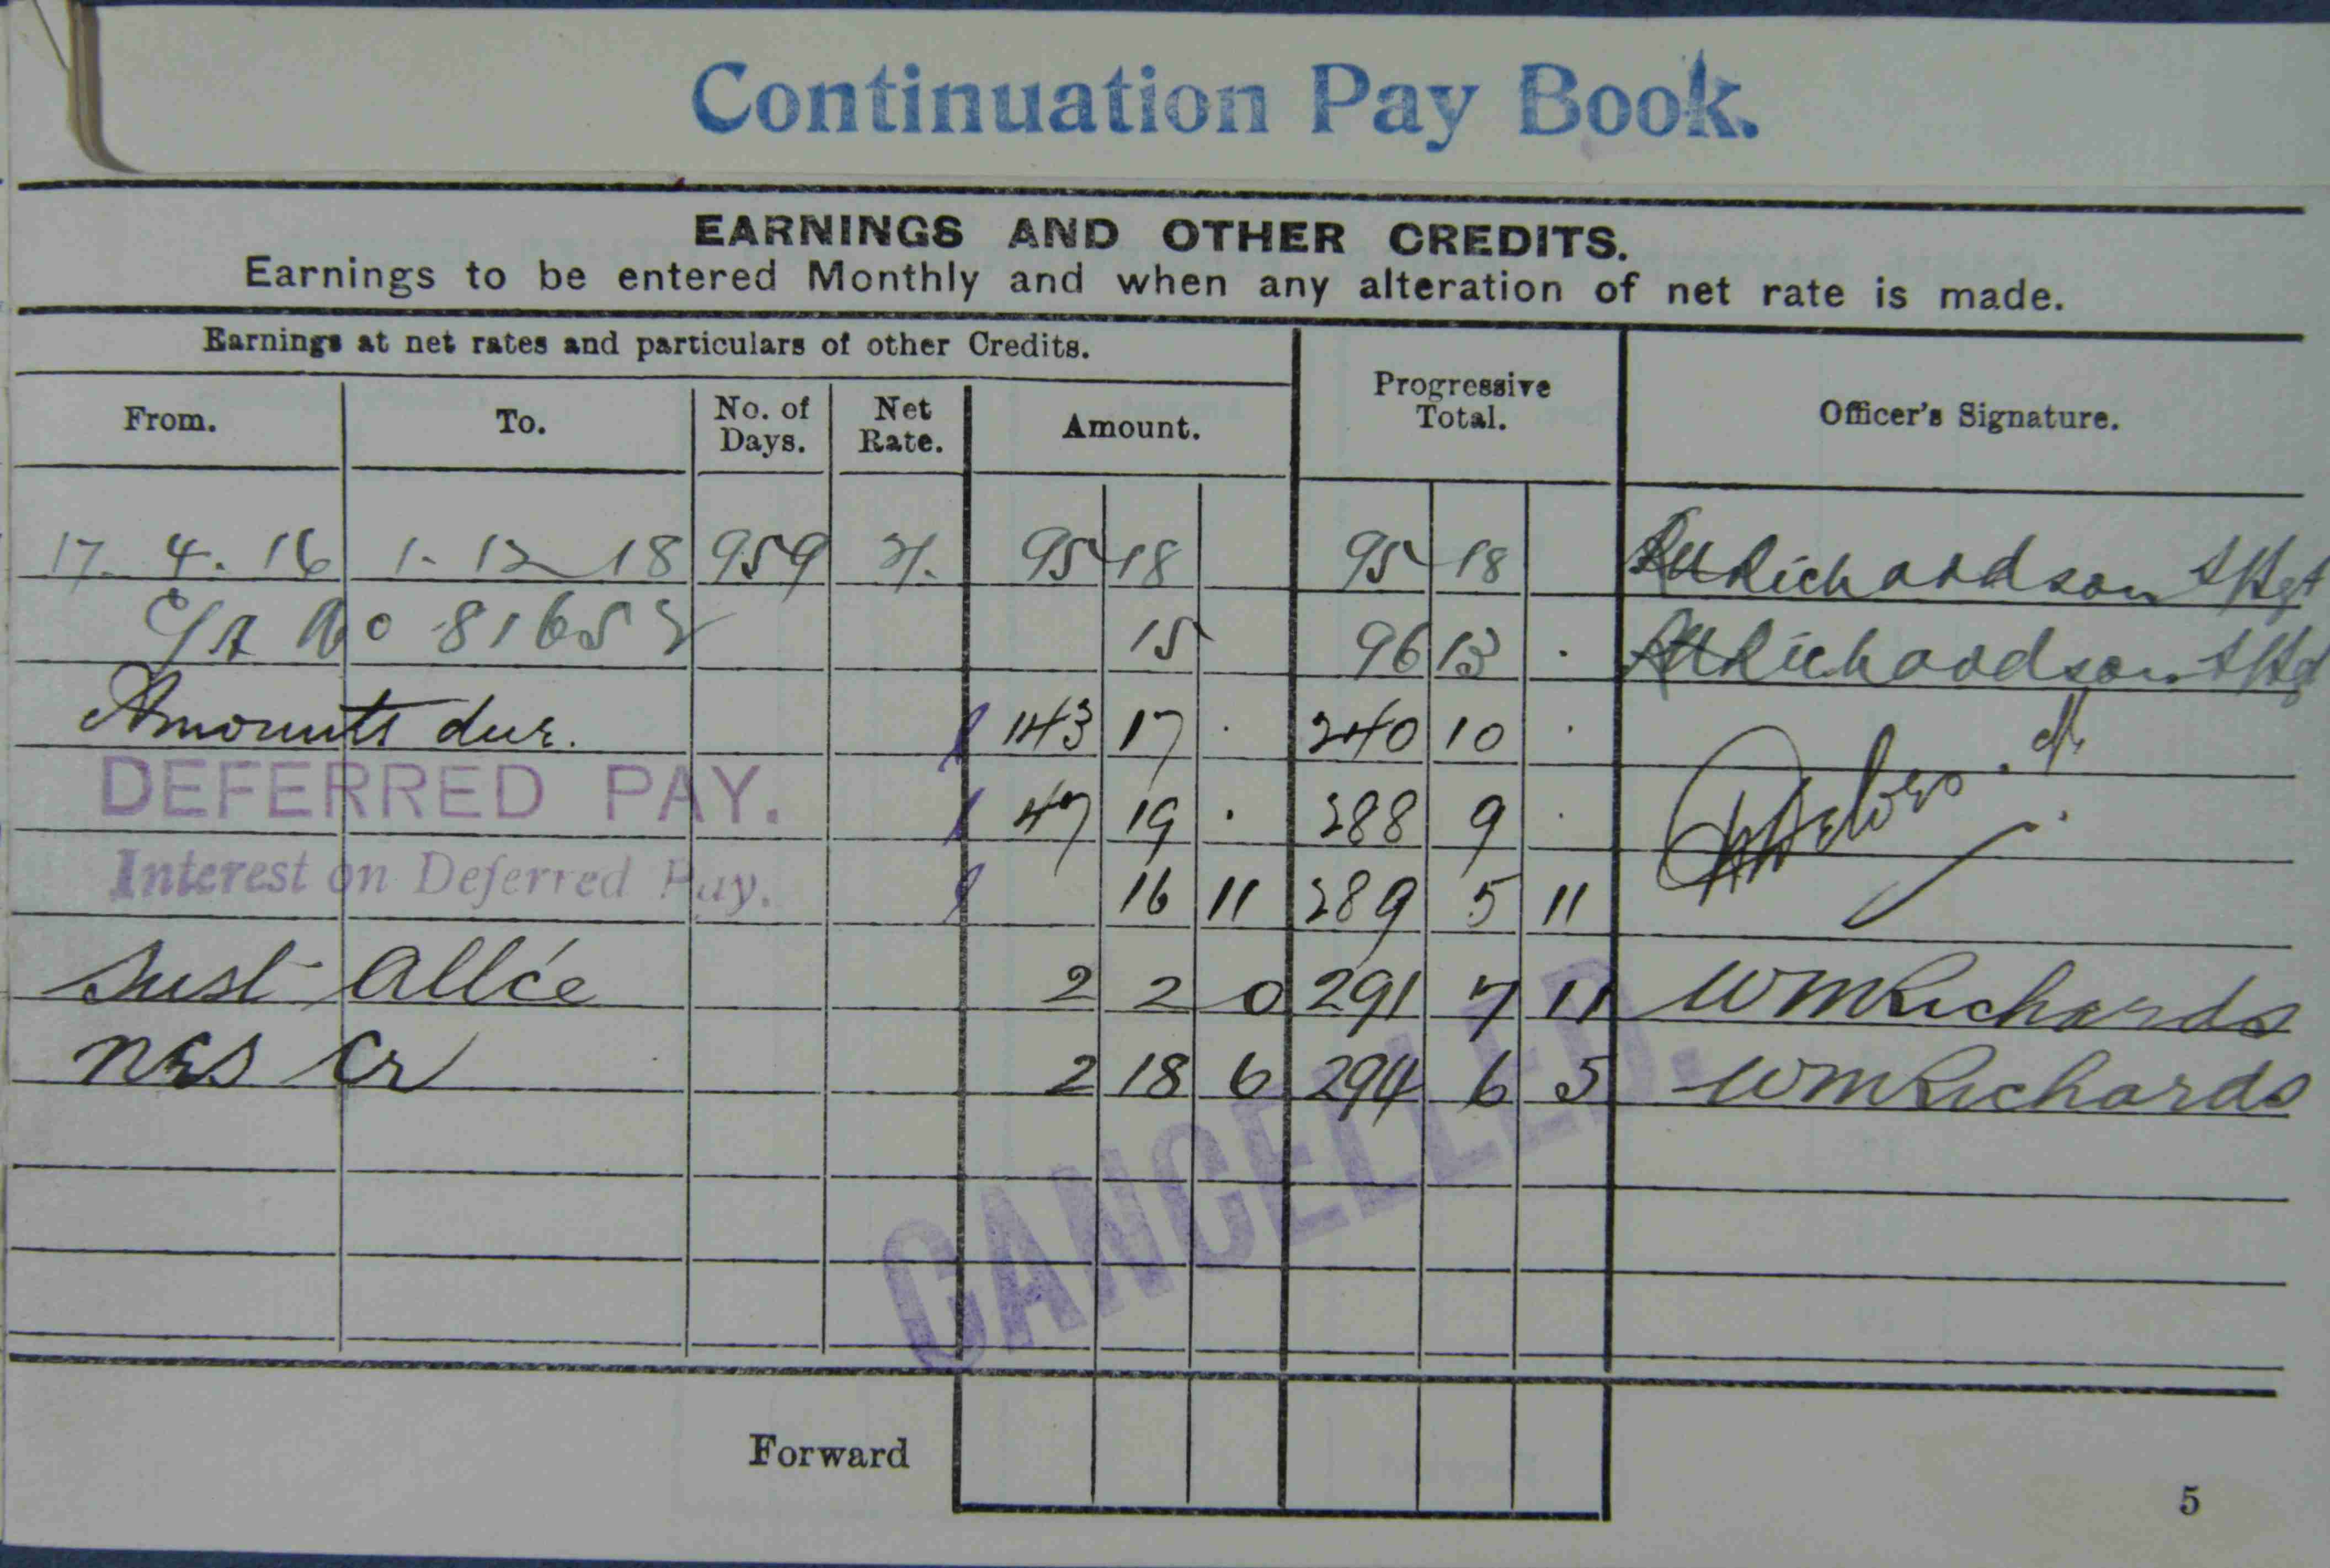 Continuation Pay Book.
EARNINGS AND OTHER CREDITS.
Earnings to be entered Monthly and when any alteration of net rate is made.
Earnings at net rates and particulars of other Credits.
From. To. No. of Days. Net Rate. Amount. Progressive Total. Officer's Signature.
17. 4. 16 1. 12 18 959 2/. 95 18 95 18 Richardson S/Sgt
No 81652 15 96 13 . Richardson S/Sgt
Amounts due. 143 17 . 240 10 .
DEFERRED PAY. 47 19 . 288 9 .
Interest on Deferred Pay. 16 11 289 5 11
Sust Allce 2 2 0 291 7 11 WM Richards
NES Cr 2 18 6 294 6 5 WM Richards
CANCELLED.
Forward
5